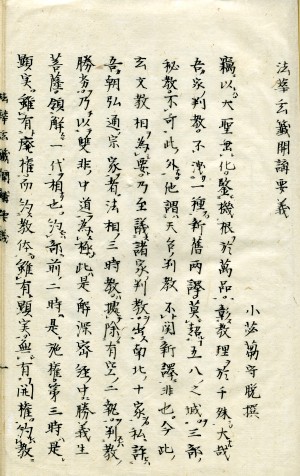 法華玄籤開講要義
小苾蒭守脱撰
竊以大聖垂化鑒機根於萬品彰教理於千殊大哉
吾家判教不漂一種新舊兩譯莫超五八之域三部
秘教不可此外他謂天台判教不関新譯非也今此
玄文教相為要乃至議諸家判教出南北十家私詳
吾朝弘通宗家者法相三時教検除有空二執判教
勝劣乃以雙非中道為極此是解深密迹中勝義生
菩薩領解一代相也約部前二時是施權第三時是
顕実雖有廃權而約教体雖有顕実無有開權約教
法華玄籤開講要義